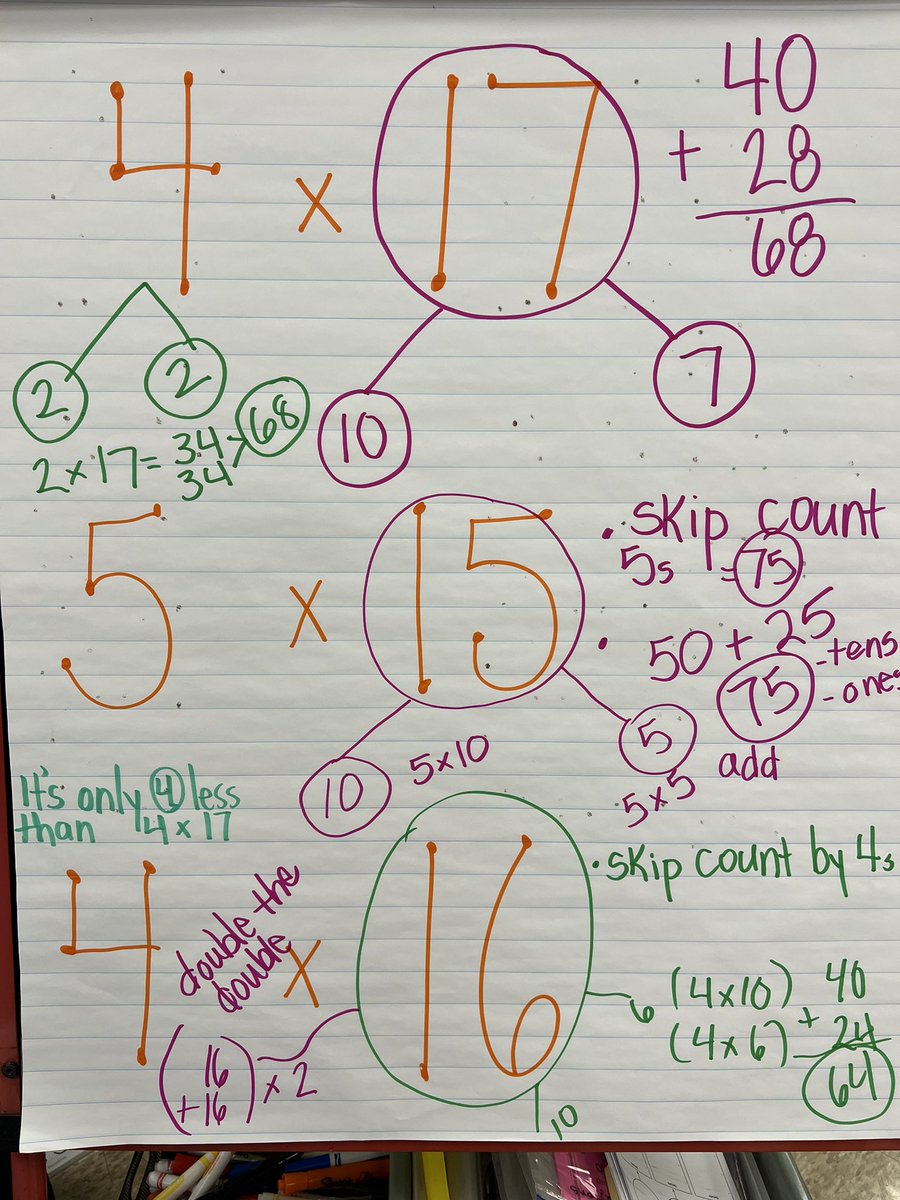 4 x 17
40
+ 28
68
2 2
10 7
2 x 17 = 34 68
34
5 x 15
• skip count
5s = 75
• 50 + 25
75 - tens
- ones
add
10 5 x 10 5
5 x 5
It's only 4 less
than 4 x 17
4 x 16
double the
double
• skip count by 4s
6 (4 x 10) 40
(4 x 6) + 24
64
( 16
+ 16 ) x 2
10